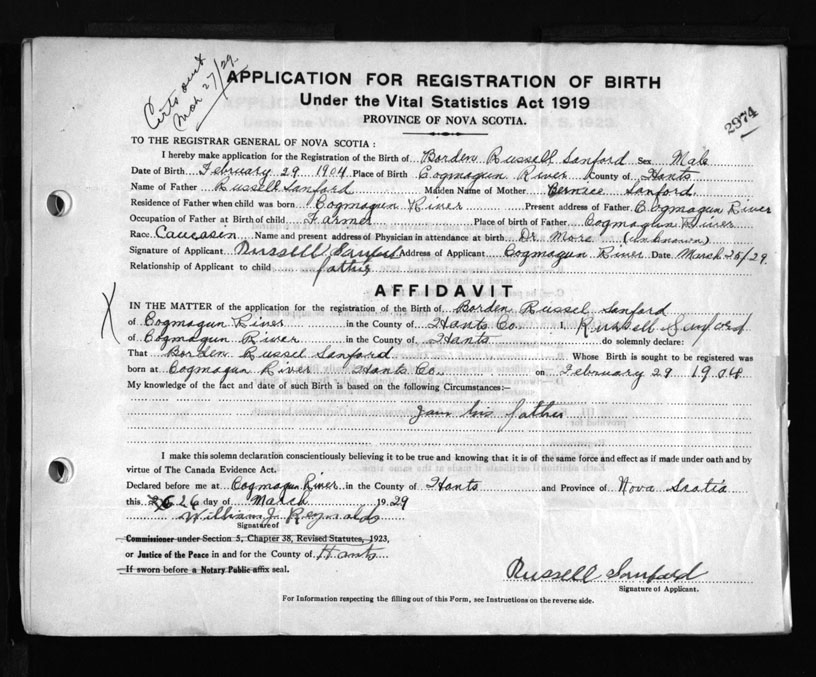 Certs sent
Mch 27/29.
APPLICATION FOR REGISTRATION OF BIRTH
Under the Vital Statistics Act 1919
PROVINCE OF NOVA SCOTIA.
2974
TO THE REGISTRAR GENERAL OF NOVA SCOTIA :
I hereby make application for the Registration of the Birth of Borden Russell Sanford Sex Male
Date of Birth February 29 1904 Place of Birth Cogmagun River County of Hants
Name of Father Russell Sanford Maiden Name of Mother Bernice Sanford
Residence of Father when child was born Cogmagun River Present address of Father Cogmagun River
Occupation of Father at Birth of child Farmer Place of birth of Father Cogmagun River
Race Caucasin Name and present address of Physician in attendance at birth Dr. More (unknown)
Signature of Applicant Russell Sanford Address of Applicant Cogmagun River Date March 25/29.
Relationship of Applicant to child father
AFFIDAVIT
X
IN THE MATTER of the application for the registration of the Birth of Borden Russel Sanford
of Cogmagun River in the County of Hants Co I, Russell Sanford
of Cogmagun River in the County of Hants do solemnly declare:
That Borden Russel Sanford Whose Birth is sought to be registered was
born at Cogmagun River Hants Co. on February 29 1904
My knowledge of the fact and date of such Birth is based on the following Circumstances:-
I am his father
I make this solemn declaration conscientiously believing it to be true and knowing that it is of the same force and effect as if made under oath and by
virtue of The Canada Evidence Act.
Declared before me at Cogmagun River in the County of Hants and Province of Nova Scotia
this 26 day of March 1929
William J. Reynolds
Signature of
Commissioner under Section 5, Chapter 38, Revised Statutes, 1923,
or Justice of the Peace in and for the County of Hants
If sworn before a Notary Public affix seal.
Russell Sanford
Signature of Applicant.
For Information respecting the filling out of this Form, see Instructions on the reverse side.